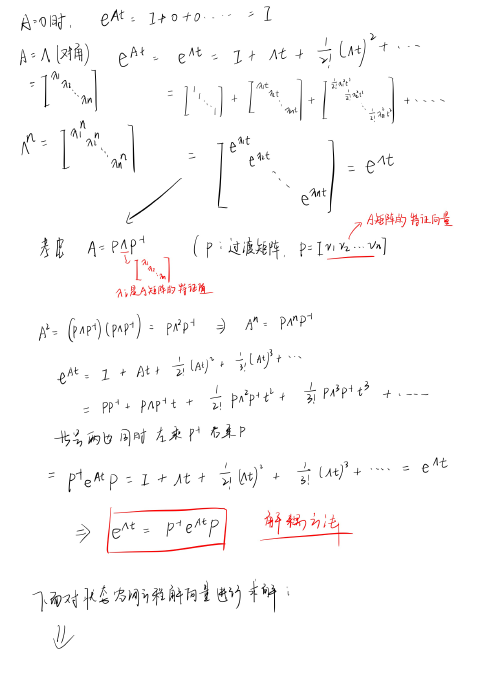 A=0时, e^{At} = I+0+0‥‥ = I
A=Λ(对角) e^{At} = e^{Λt} = I + Λt + \frac{1}{2!}(Λt)^2 + ⋯
= [λ₁ λ₂ ⋱ λₙ] = [1 1 ⋱ 1] + [λ₁t λ₂t ⋱ λₙt] + [\frac{1}{2!}λ₁²t² \frac{1}{2!}λ₂²t² ⋱ \frac{1}{2!}λₙ²t²] + ‥‥
Λ^n = [λ₁^n λ₂^n ⋱ λₙ^n] = [e^{λ₁t} e^{λ₂t} ⋱ e^{λₙt}] = e^{Λt}
A矩阵的特征向量
考虑 A = PΛP^{-1} (P:过渡矩阵, P=[v₁ v₂ ⋯ vₙ]
[λ₁ λ₂ ⋱ λₙ]
λi是A矩阵的特征值
A² = (PΛP^{-1})(PΛP^{-1}) = PΛ²P^{-1} ⇒ A^n = PΛ^nP^{-1}
e^{At} = I + At + \frac{1}{2!}(At)² + \frac{1}{3!}(At)³ + ⋯
= PP^{-1} + PΛP^{-1}t + \frac{1}{2!}PΛ²P^{-1}t² + \frac{1}{3!}PΛ³P^{-1}t³ + ‥‥
等号两边同时左乘P^{-1}右乘P
= P^{-1}e^{At}P = I + Λt + \frac{1}{2!}(Λt)² + \frac{1}{3!}(Λt)³ + ‥‥ = e^{Λt}
⇒ e^{Λt} = P^{-1}e^{Λt}P 解耦方法
下面对状态空间方程解向量进行求解:
⇓